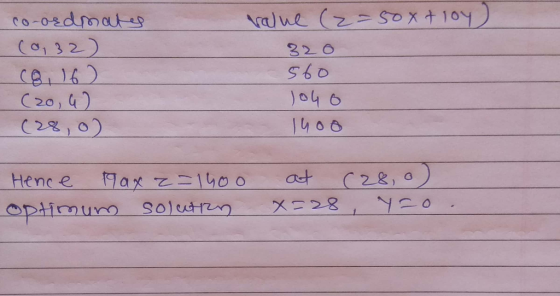 co-ordinates value (z=50x+10y)
(0,32) 320
(8,16) 560
(20,4) 1040
(28,0) 1400
Hence Max z=1400 at (28,0)
optimum solution x=28, y=0.